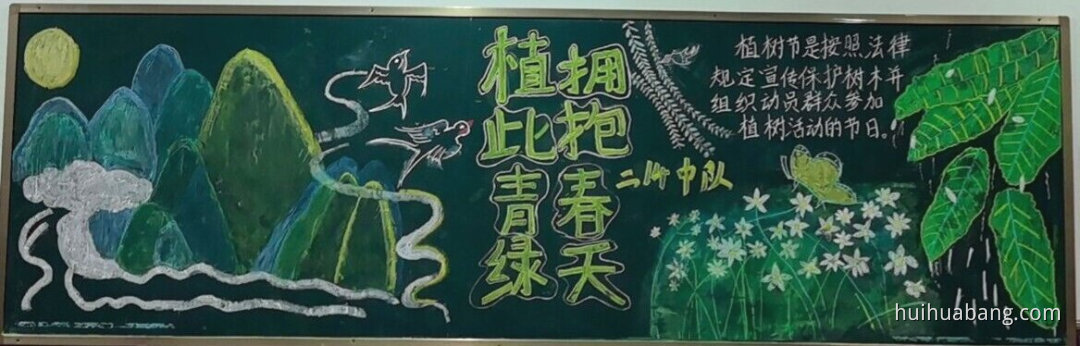 植此青绿
拥抱春天
二14中队
植树节是按照法律
规定宣传保护树木并
组织动员群众参加
植树活动的节日。
huihuabang.com